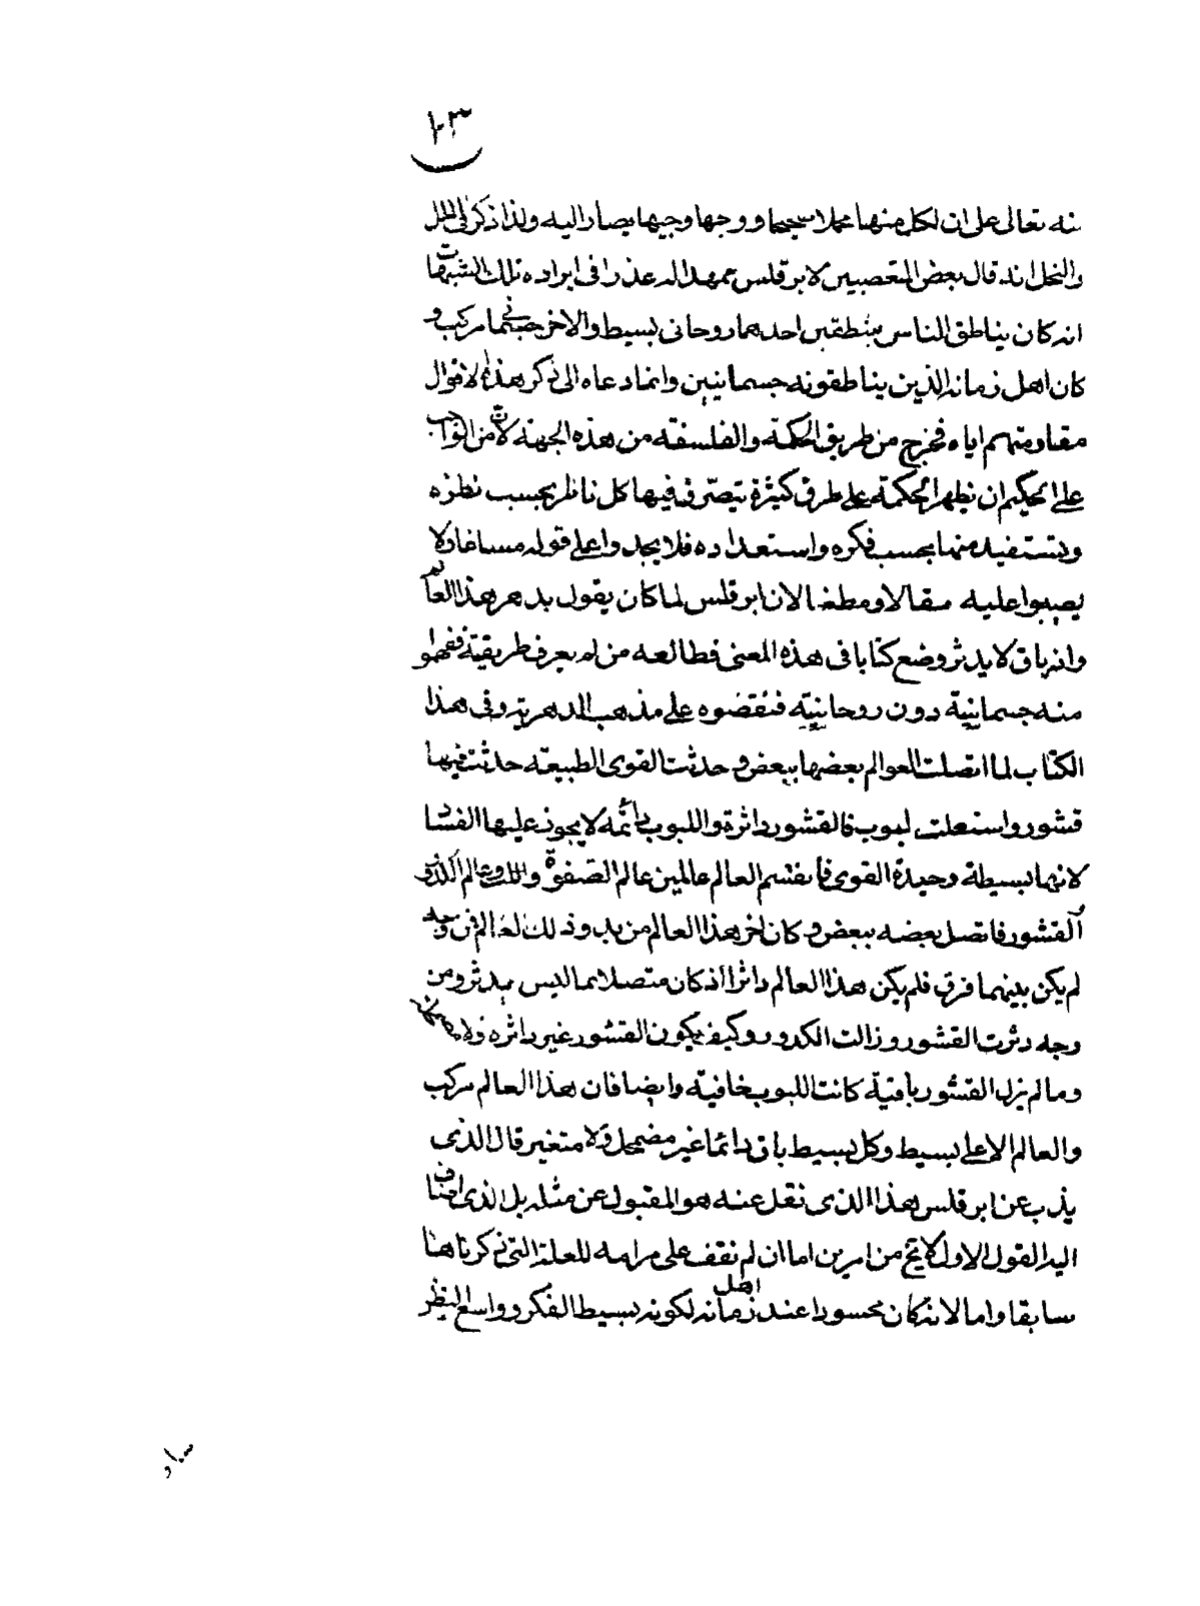 ١٠٣
منه تعالى على ان لكل منها محملا صحيحا ووجها وجيها يصار اليه ولذا ذكر في الملل
والنحل انه قال بعض المتعصبين لابرقلس ممهدا له عذرا في ايراده تلك الشبهات
انه كان يناطق الناس بمنطقين احدهما روحانى بسيط والاخر جسمانى مركب و
كان اهل زمانه الذين يناطقونه جسمانيين وانما دعاه الى ذكر هذه الاقوال
مقاومتهم اياه فخرج من طريق الحكمة والفلسفة من هذه الجهة لان من الواجب
على الحكيم ان يظهر الحكمة على طرق كثيرة يتصرف فيها كل ناظر بحسب نظره
ويستفيد منها بحسب فكره واستعداده فلا يجدوا على قوله مساغا ولا
يصيبوا عليه مقالا ومطعنا لان ابرقلس لما كان يقول بدهر هذا العالم
وانه باق لا يدثر وضع كتابا فى هذه المعنى فطالعه من لم يعرف طريقته ففهموا
منه جسمانية دون روحانية فنقضوه على مذهب الدهرية وفى هذا
الكتاب لما اتصلت العوالم بعضها ببعض و حدثت القوى الطبيعة حدثت فيها
قشور واستعلت لبوب فالقشور داثرة واللبوب دائمة لا يجوز عليها الفساد
لانها بسيطة وحيدة القوى فانقسم العالم عالمين عالم الصفوة واللب وعالم الكدورة
القشور فاتصل بعضه ببعض وكان اخر هذا العالم من بدو ذلك العالم فمن وجه
لم يكن بينهما فرق فلم يكن هذا العالم داثرا اذ كان متصلا بما ليس يدثر ومن
وجه دثرت القشور وزالت الكدورة وكيف يكون القشور غير داثرة ولا مضمحلة
وما لم يزل القشور باقية كانت اللبوب خافية وايضا فان هذا العالم مركب
والعالم الاعلى بسيط وكل بسيط باق دائما غير مضمحل ولا متغير قال الذى
يذب عن ابرقلس هذا الذى نقل عنه هو المقبول عن مثله بل الذى اضاف
اليه القول الاول لا يخ من امرين اما ان لم نقف على مرامه للعلة التى ذكرناها
سابقا واما لانه كان محسودا عند اهل زمانه لكونه بسيط الفكر وواسع النظر